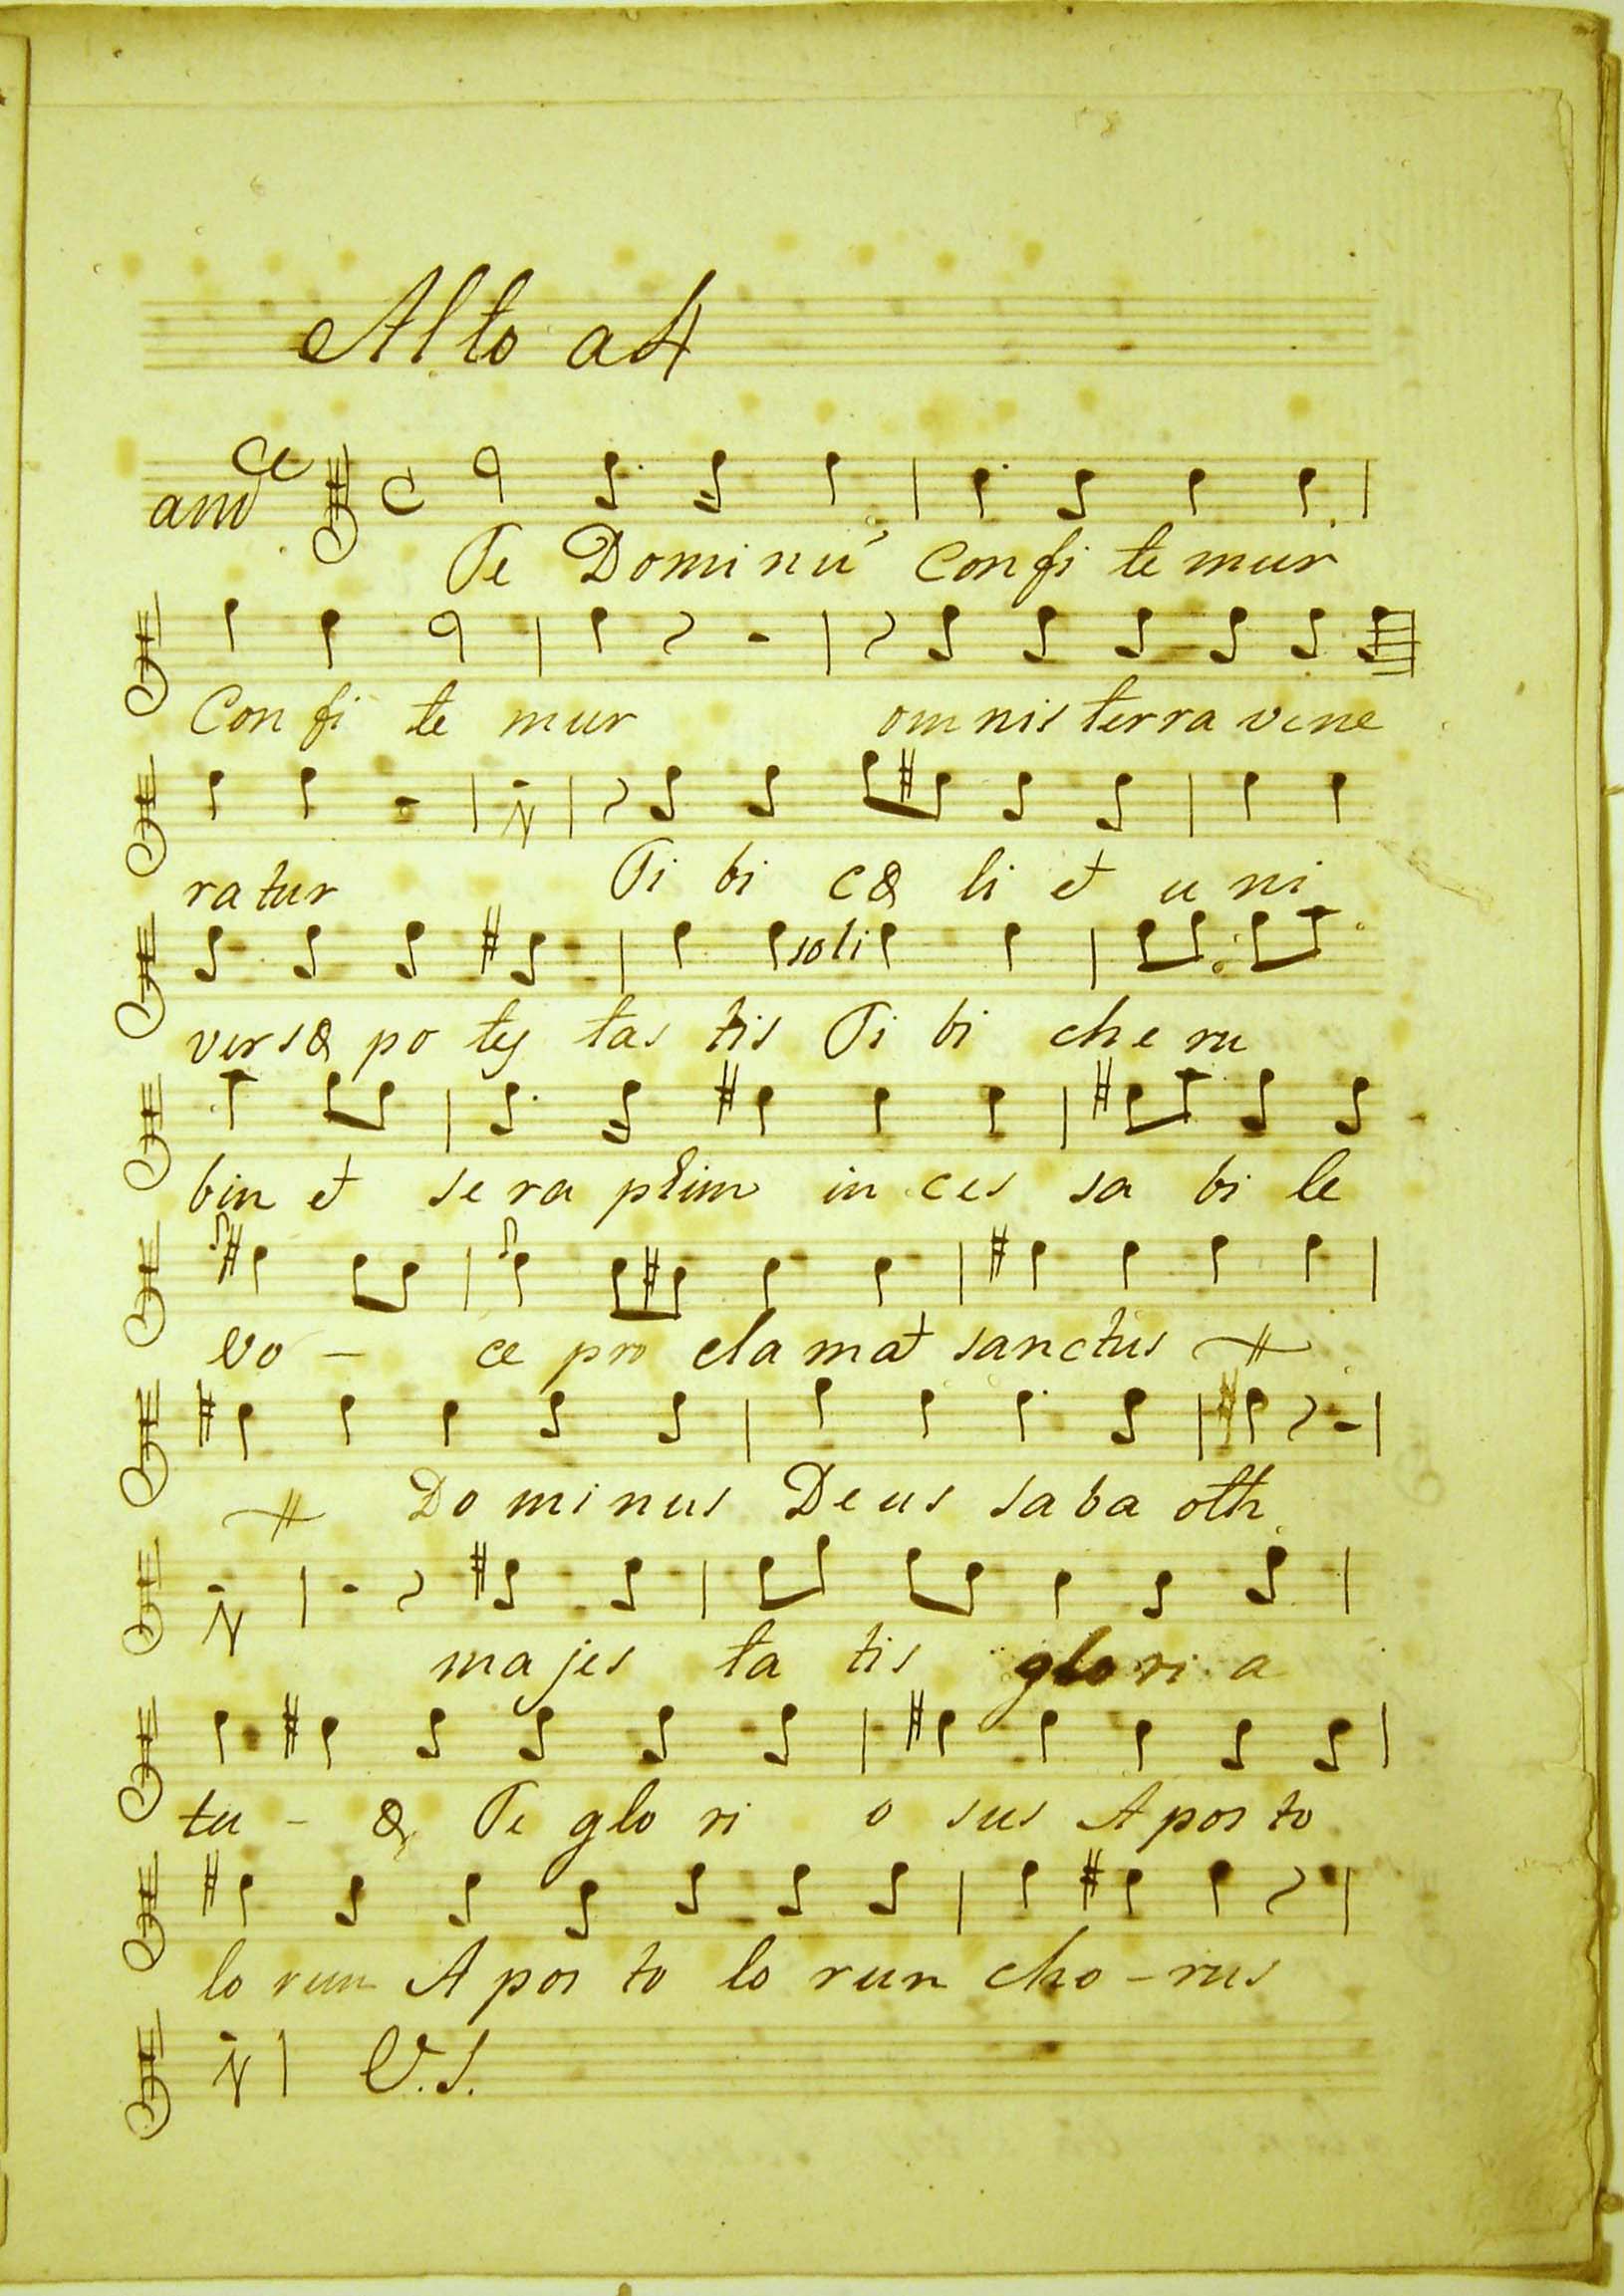 Alto a4
andce
Te Dominũ confi te mur
Con fi te mur omnis terra vene
ratur Ti bi cæ li et u ni
soli
versæ po tes tas tis Ti bi che ru
bin et se ra phim in ces sa bi le
vo - ce pro clamat sanctus
Do minus Deus saba oth
N majes ta tis glori a
tu - æ Te glo ri o sus A pos to
lo run A pos to lo run cho - rus
V. S.